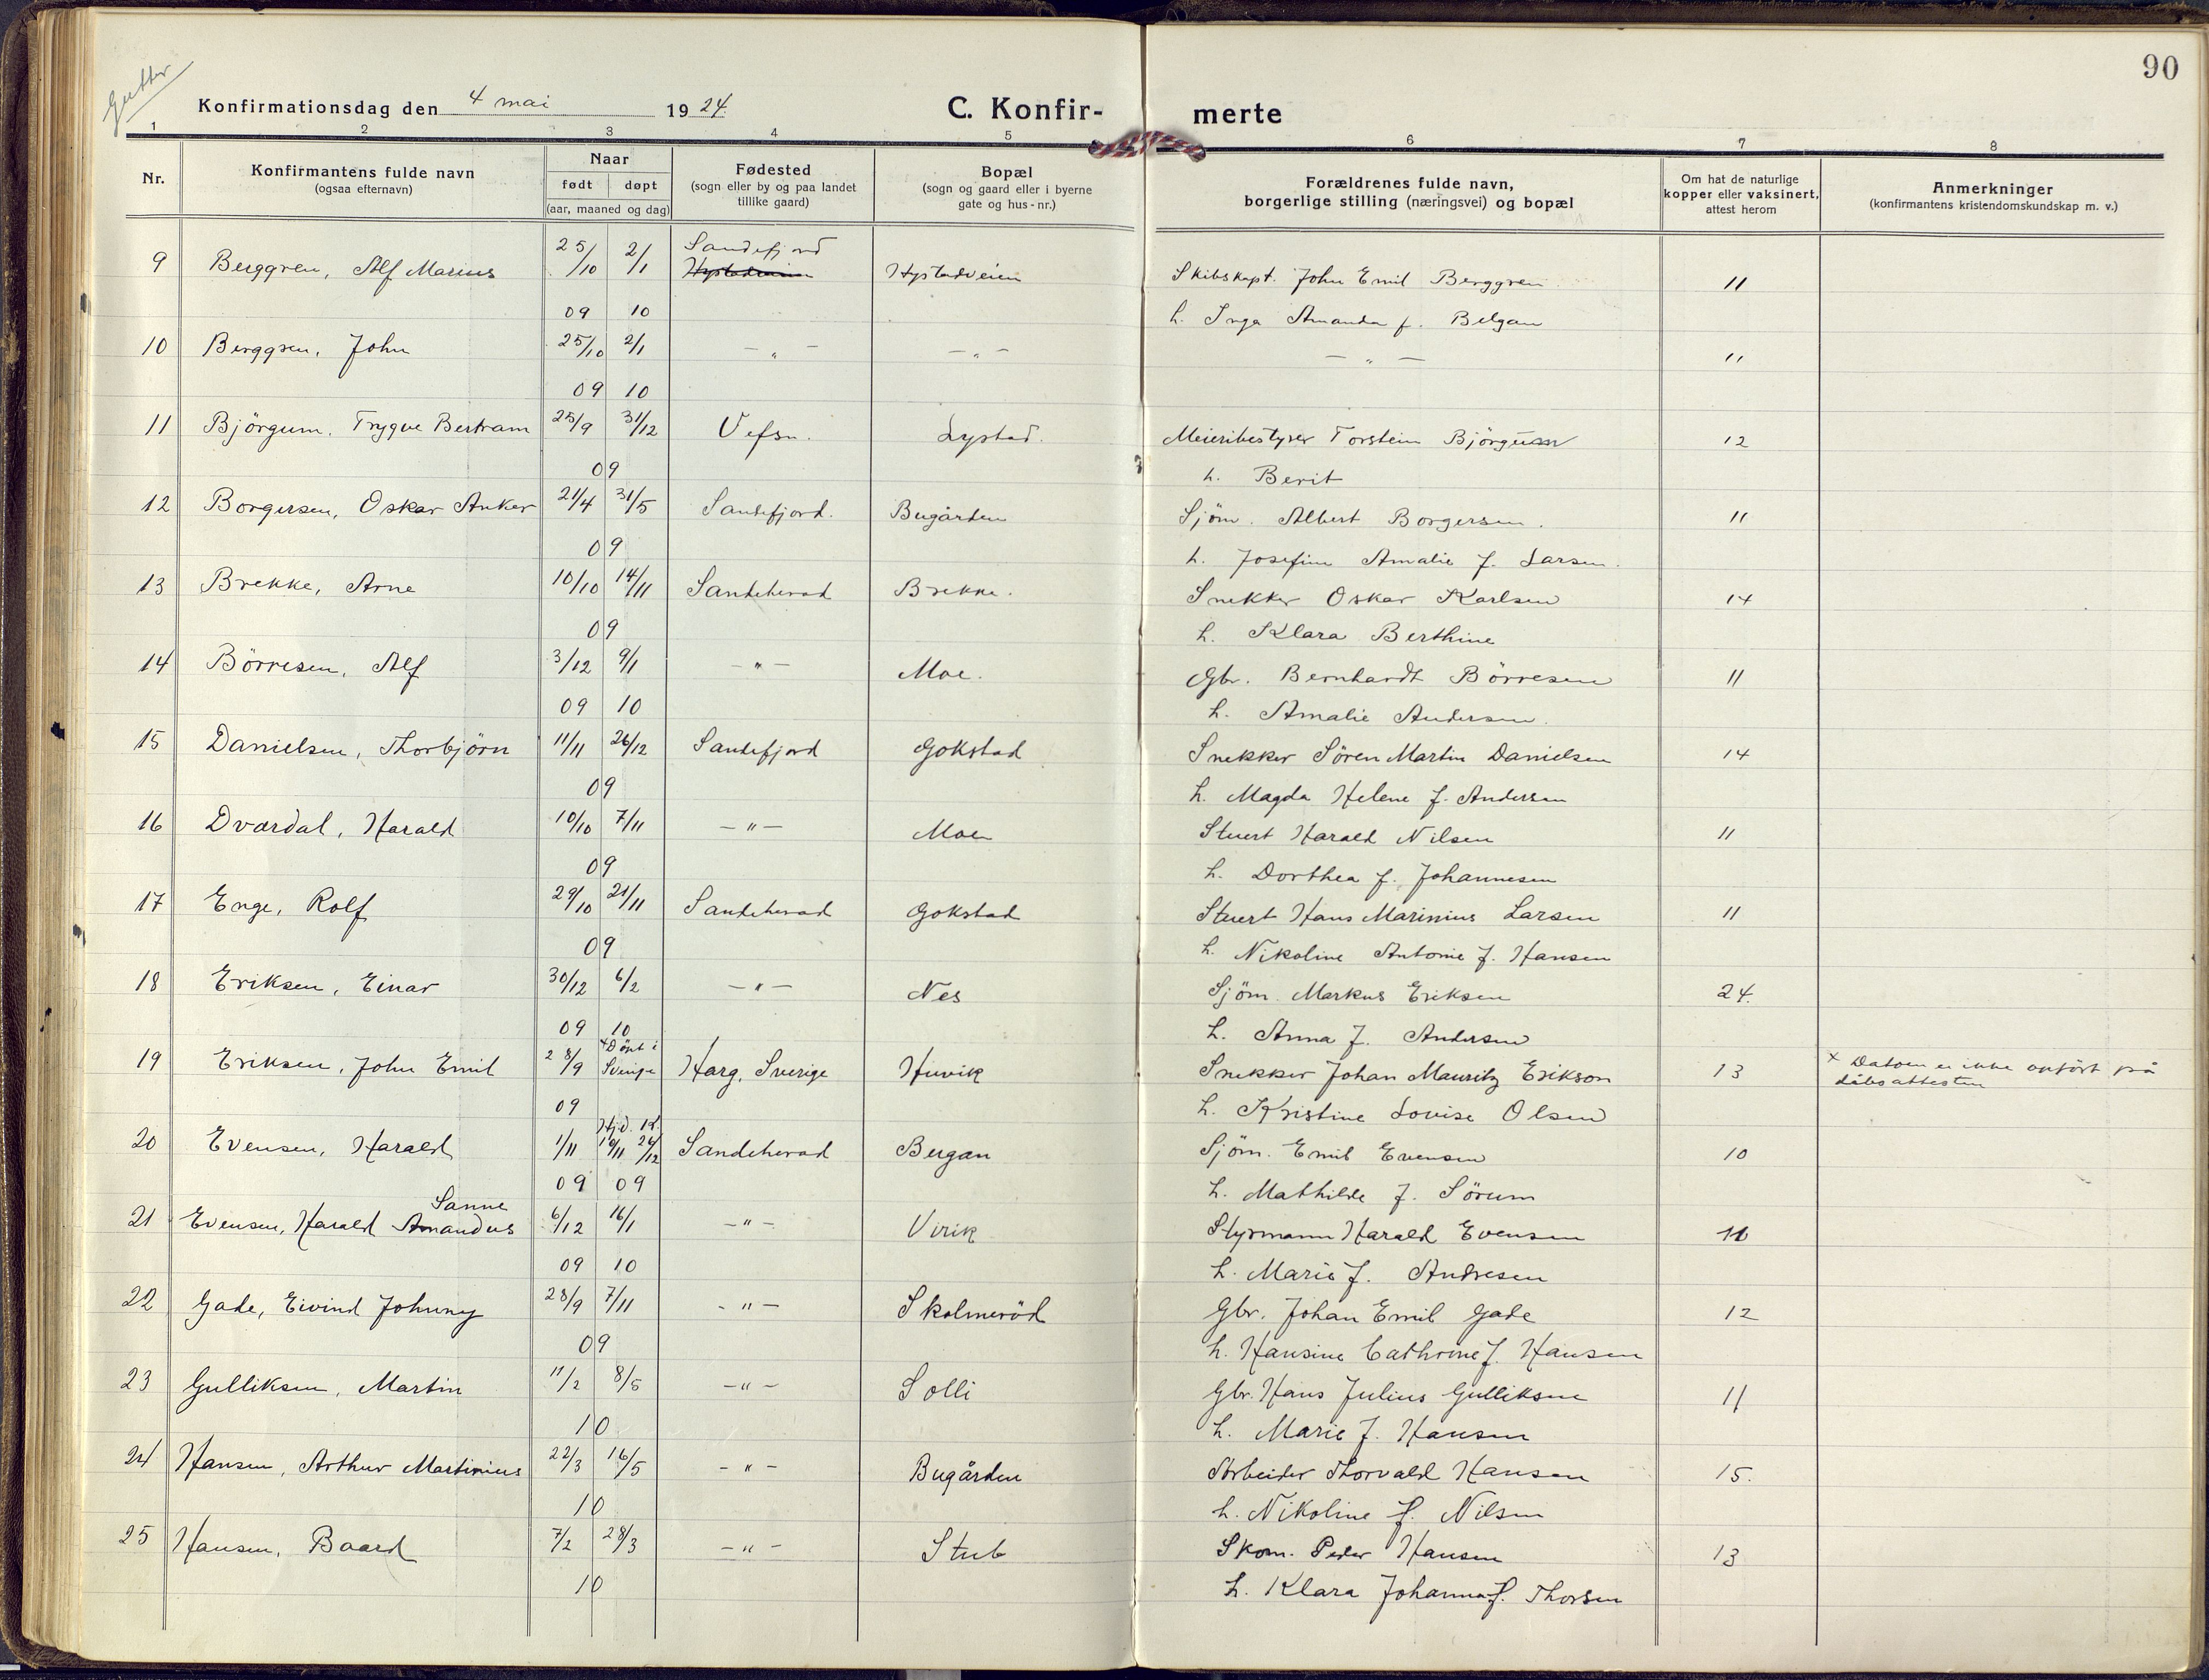 90
Gutter
Konfirmationsdag den 4 mai 1924 C. Konfir- merte
1 2 3 4 5 6 7 8
Nr.
Konfirmantens fulde navn
(ogsaa efternavn)
Naar
født døpt
(aar, maaned og dag)
Fødested
(sogn eller by og paa landet
tillike gaard)
Bopæl
(sogn og gaard eller i byerne
gate og hus-nr.)
Forældrenes fulde navn,
borgerlige stilling (næringsvei) og bopæl
Om hat de naturlige
kopper eller vaksinert,
attest herom
Anmerkninger
(konfirmantens kristendomskundskap m. v.)
9 Berggren, Alf Marius 25/10 09 2/1 10 Sandefjord Hystadveien Skibskapt. John Emil Berggren 11
h. Inga Amanda f. Belgau
10 Berggren, John 25/10 09 2/1 10 — " — — " — — " — 11
11 Björgum, Trygve Bertram 25/9 31/12 09 Vefsn. Lystad. Meieribestyrer Torstein Björgum 12
h. Berit
12 Borgersen, Oskar Anker 21/4 31/5 09 Sandefjord. Bugården Sjöm. Albert Borgersen. 11
h. Josefine Amalie f. Larsen.
13 Brekke, Arne 10/10 14/11 09 Sandeherad Brekke. Snekker Oskar Karlsen 14
h. Klara Berthine
14 Börresen, Alf 3/12 09 9/1 10 — " — Moe. Gbr. Bernhardt Börresen 11
h. Amalie Andersen.
15 Danielsen, Thorbjörn 11/11 26/12 09 Sandefjord Gokstad Snekker Sören Martin Danielsen 14
h. Magda Helene f. Andersen
16 Dvardal, Harald 10/10 7/11 09 — " — Moen Stuert Harald Nilsen 11
h. Dorthea f. Johannesen
17 Enge, Rolf 29/10 21/11 09 Sandeherad Gokstad Stuert Hans Marinius Larsen 11
h. Nikoline Antonie f. Hansen
18 Eriksen, Einar 30/12 09 6/2 10 — " — Nes Sjöm. Markus Eriksen 24.
h. Anna f. Andersen
19 Eriksen, John Emil 28/9 09 × Döpt i Sverige Harg, Sverige Huvik Snekker Johan Mauritz Erikson 13 × Datoen er ikke anfört på
dåbsattesten
h. Kristine Lovise Olsen
20 Evensen, Harald 1/11 09 Hjd. 10/11 K. 26/12 09 Sandeherad Bergan Sjöm. Emil Evensen 10
h. Mathilde f. Sörum
21 Evensen, Harald Sanne Amandus 6/12 09 16/1 10 — " — Virik Styrmann Harald Evensen 11
h. Marie f. Andresen
22 Gade, Eivind Johnny 28/9 7/11 09 — " — Skolmeröd Gbr. Johan Emil Gade 12
h. Hansine Cathrine f. Hansen
23 Gulliksen, Martin 11/2 8/5 10 — " — Solli Gbr. Hans Julius Gulliksen 11
h. Marie f. Hansen
24 Hansen, Arthur Martinius 22/3 16/5 10 — " — Bugården Arbeider Thorvald Hansen 15.
h. Nikoline f. Nilsen
25 Hansen, Baard 7/2 28/3 10 — " — Stub Skom. Peder Hansen 13
h. Klara Johanna f. Thorsen